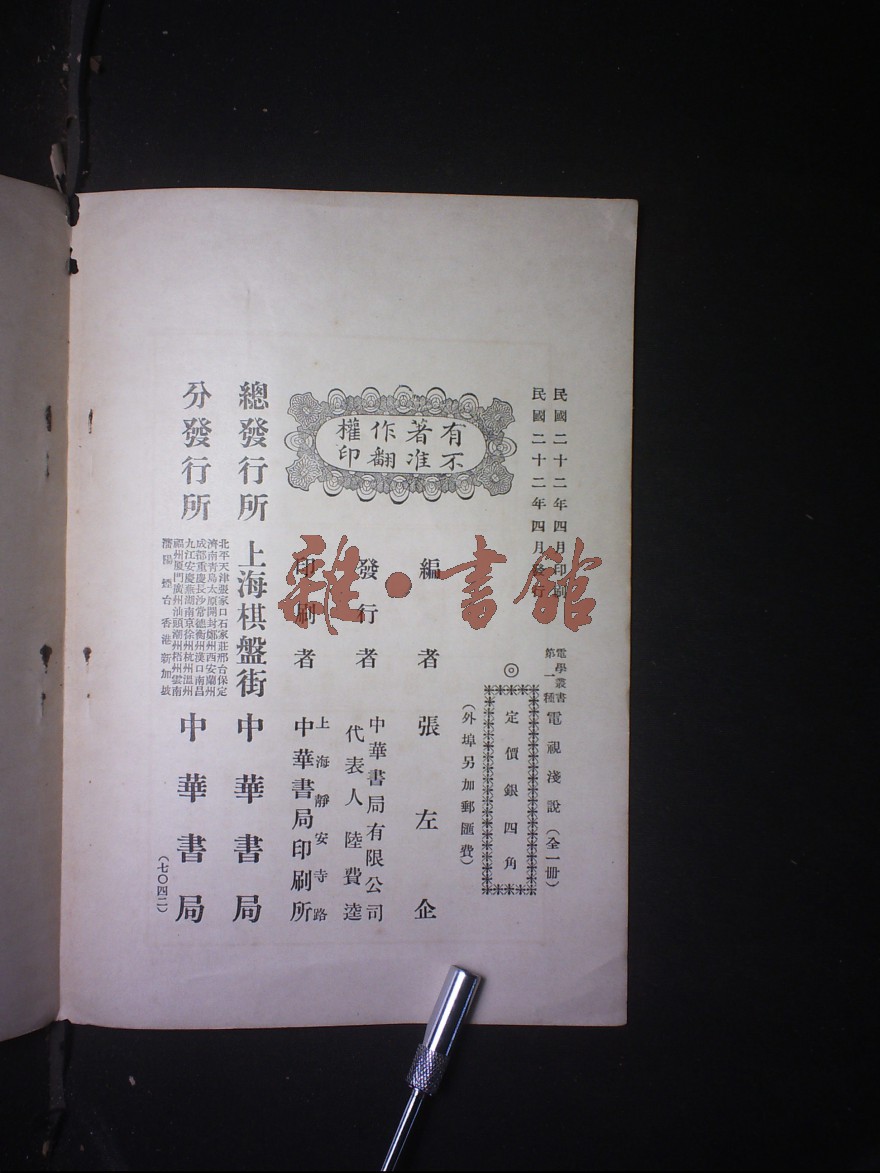 民國二十二年四月印刷
民國二十二年四月發行
電學叢書
第一種
電視淺說(全一冊)
◎定價銀四角
(外埠另加郵匯費)
有著作權
不准翻印
編者 張左企
發行者 中華書局有限公司
代表人 陸費逵
印刷者 上海靜安寺路
中華書局印刷所
總發行所 上海棋盤街 中華書局
分發行所
北平天津張家口石家莊邢台保定
濟南青島太原開封鄭州西安蘭州
成都重慶長沙常德衡州漢口南昌
九江安慶蕪湖南京徐州杭州溫州
福州厦門廣州汕頭潮州梧州雲南
瀋陽 煙台香港新加坡
中華書局
(七〇四二)
雜·書館